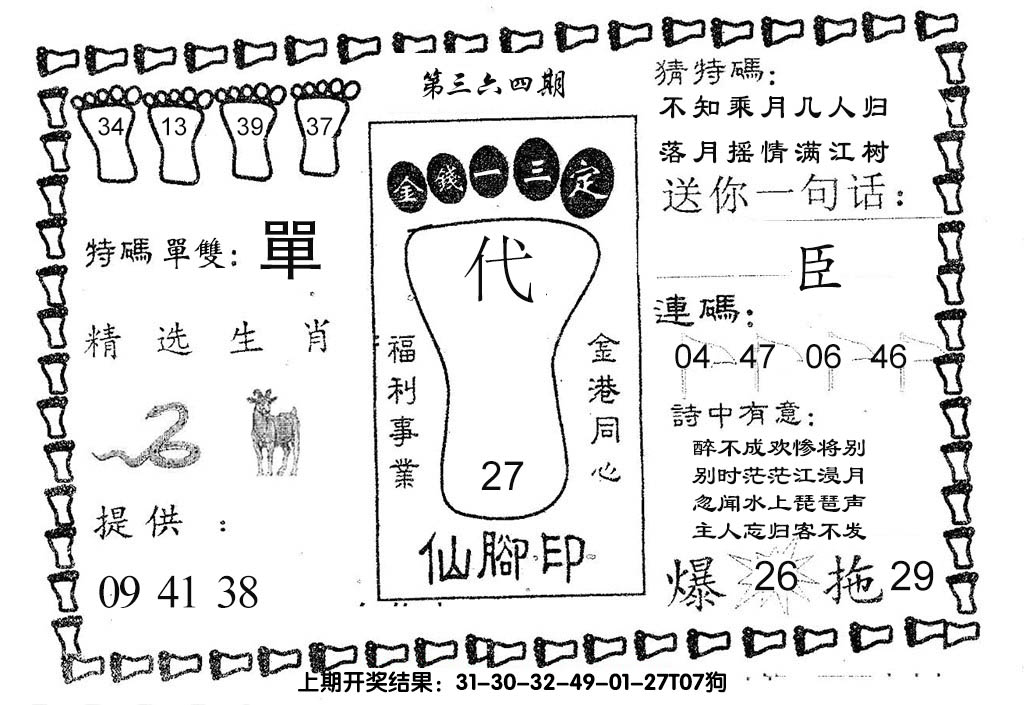 第三六四期
34 13 39 37
特碼單雙：單
精选生肖
提供：
09 41 38
金錢一三定
代
福利事業
金港同心
27
仙腳印
猜特碼：
不知乘月几人归
落月摇情满江树
送你一句话：
臣
連碼：
04 47 06 46
詩中有意：
醉不成欢惨将别
别时茫茫江浸月
忽闻水上琵琶声
主人忘归客不发
爆 26 拖 29
上期开奖结果：31-30-32-49-01-27T07狗